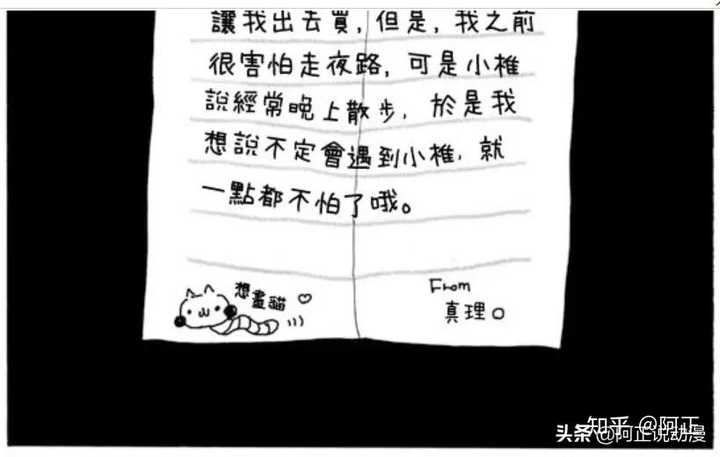 讓我出去買,但是,我之前
很害怕走夜路,可是小椎
說經常晚上散步,於是我
想說不定會遇到小椎,就
一點都不怕了哦。
想畫貓♡
From
真理〇
知乎 @阿正
头条 @阿正说动漫